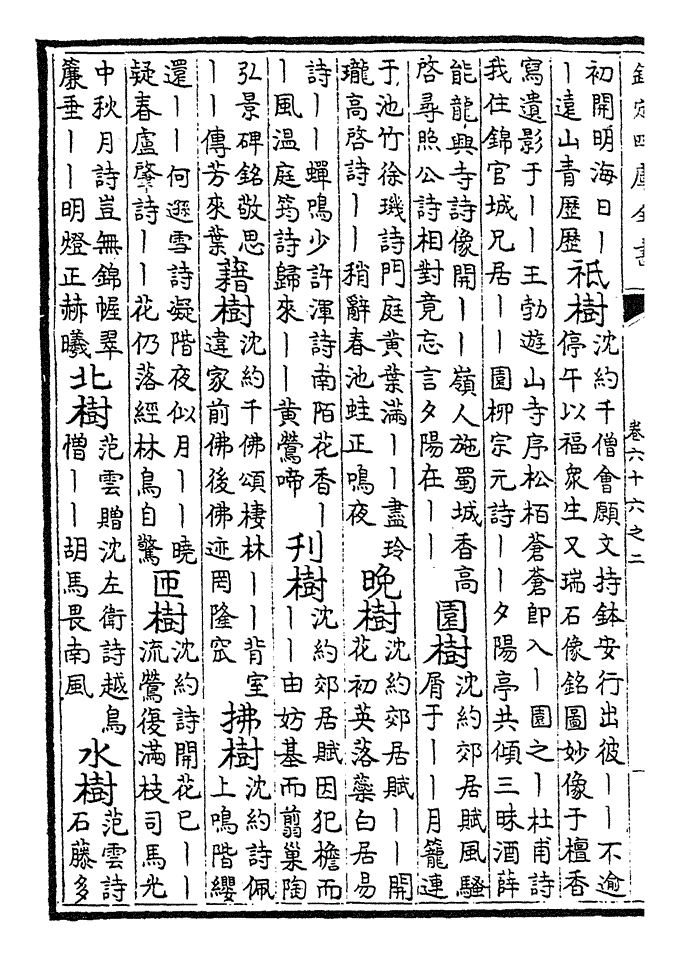 欽定四庫全書
卷六十六之二
初開明海日丨
丨遠山青歷歷
祗樹
沈約千僧會願文持鉢安行出彼丨丨不逾
停午以福衆生又瑞石像銘圖妙像于檀香
寫遺影于丨丨王勃遊山寺序松栢蒼蒼卽入丨園之丨杜甫詩
我住錦官城兄居丨丨園柳宗元詩丨丨夕陽亭共傾三昧酒薛
能龍興寺詩像開丨丨嶺人施蜀城香高
啓尋照公詩相對竟忘言夕陽在丨丨
園樹
沈約郊居賦風騷
屑于丨丨月籠連
于池竹徐璣詩門庭黃葉滿丨丨盡玲
瓏高啓詩丨丨稍辭春池蛙正鳴夜
晚樹
沈約郊居賦丨丨開
花初英落蘂白居易
詩丨丨蟬鳴少許渾詩南陌花香丨
丨風溫庭筠詩歸來丨丨黃鶯啼
刋樹
沈約郊居賦因犯檐而
丨丨由妨基而翦巢陶
弘景碑銘敬思
丨丨傳芳來葉
藉樹
沈約千佛頌棲林丨丨背室
違家前佛後佛迹罔隆窊
拂樹
沈約詩佩
上鳴階纓
還丨丨何遜雪詩凝階夜似月丨丨曉
疑春盧肇詩丨丨花仍落經林鳥自驚
匝樹
沈約詩開花已丨丨
流鶯復滿枝司馬光
中秋月詩豈無錦幄翠
簾垂丨丨明燈正赫曦
北樹
范雲贈沈左衛詩越鳥
憎丨丨胡馬畏南風
水樹
范雲詩
石藤多